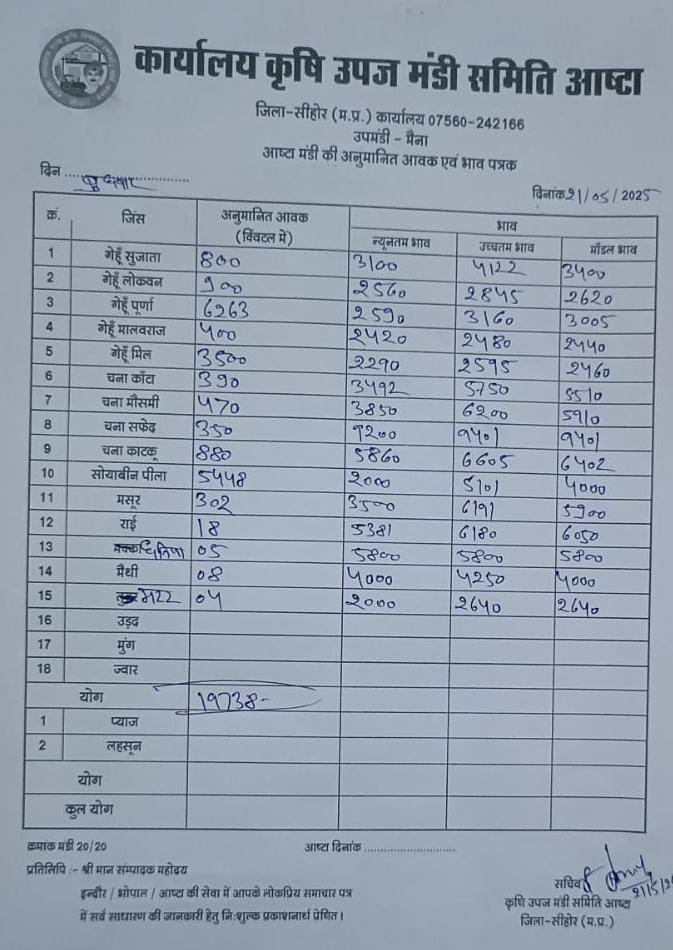 कार्यालय कृषि उपज मंडी समिति आष्टा
जिला-सीहोर (म.प्र.) कार्यालय 07560-242166
उपमंडी – मैना
आष्टा मंडी की अनुमानित आवक एवं भाव पत्रक
दिन .... बुधवार ....
दिनांक 21/05/2025
क्रं. जिंस अनुमानित आवक (क्विंटल में) भाव
न्यूनतम भाव उच्चतम भाव मॉडल भाव
1 गेहूँ सुजाता 800 3100 4122 3400
2 गेहूँ लोकवन 900 2560 2845 2620
3 गेहूँ पूर्णा 6263 2590 3160 3005
4 गेहूँ मालवराज 400 2420 2480 2440
5 गेहूँ मिल 3500 2290 2595 2460
6 चना काँटा 390 3492 5750 5510
7 चना मौसमी 470 3850 6200 5910
8 चना सफेद 350 9200 9401 9401
9 चना काटकू 880 5860 6605 6402
10 सोयाबीन पीला 5448 2000 5101 4000
11 मसूर 302 3500 6191 5900
12 राई 18 5381 6180 6050
13 05 5800 5800 5800
14 मैथी 08 4000 4250 4000
15 मटर 04 2000 2640 2640
16 उड़द
17 मुंग
18 ज्वार
योग 19738-
1 प्याज
2 लहसून
योग
कुल योग
क्रमांक मंडी 20/20 आष्टा दिनांक ............................
प्रतिलिपि :- श्री मान संम्पादक महोदय
इन्दौर / भोपाल / आष्टा की सेवा में आपके लोकप्रिय समाचार पत्र
में सर्व साधारण की जानकारी हेतु निःशुल्क प्रकाशनार्थ प्रेषित ।
सचिव
21/5/25
कृषि उपज मंडी समिति आष्टा
जिला-सीहोर (म.प्र.)